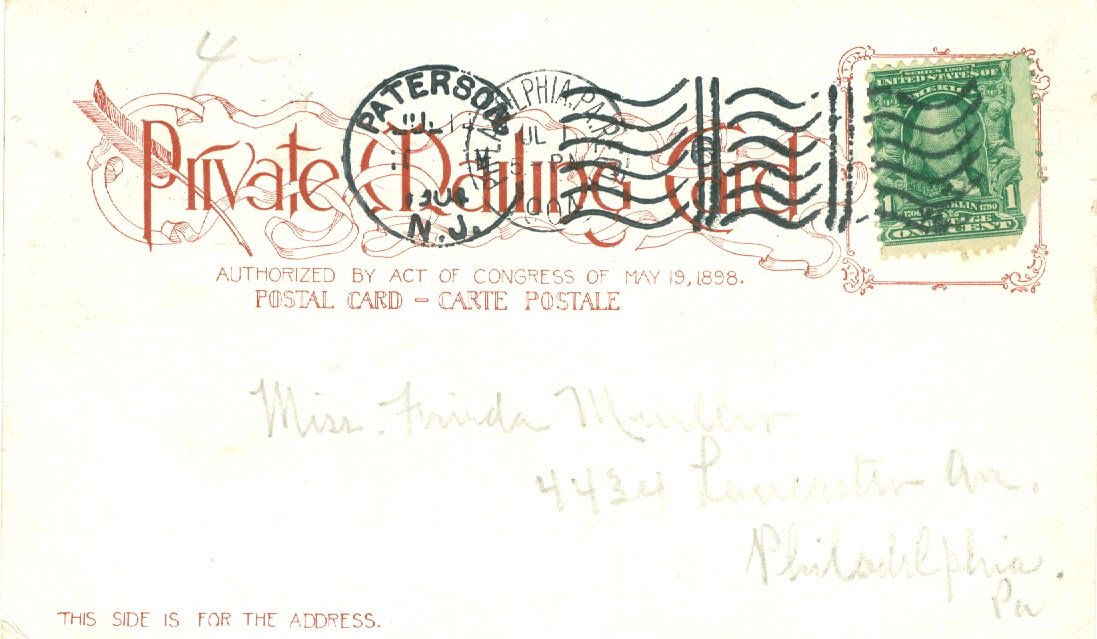 4-
PATERSON
N.J.
Private Mailing Card
SERIES 1902
UNITED STATES OF
AMERICA
1 FRANKLIN 1790 1
1706
POSTAGE
ONE CENT
AUTHORIZED BY ACT OF CONGRESS OF MAY 19, 1898.
POSTAL CARD – CARTE POSTALE
Miss. Frieda Mueller
4434 Lancaster Ave.
Philadelphia.
Pa
THIS SIDE IS FOR THE ADDRESS.